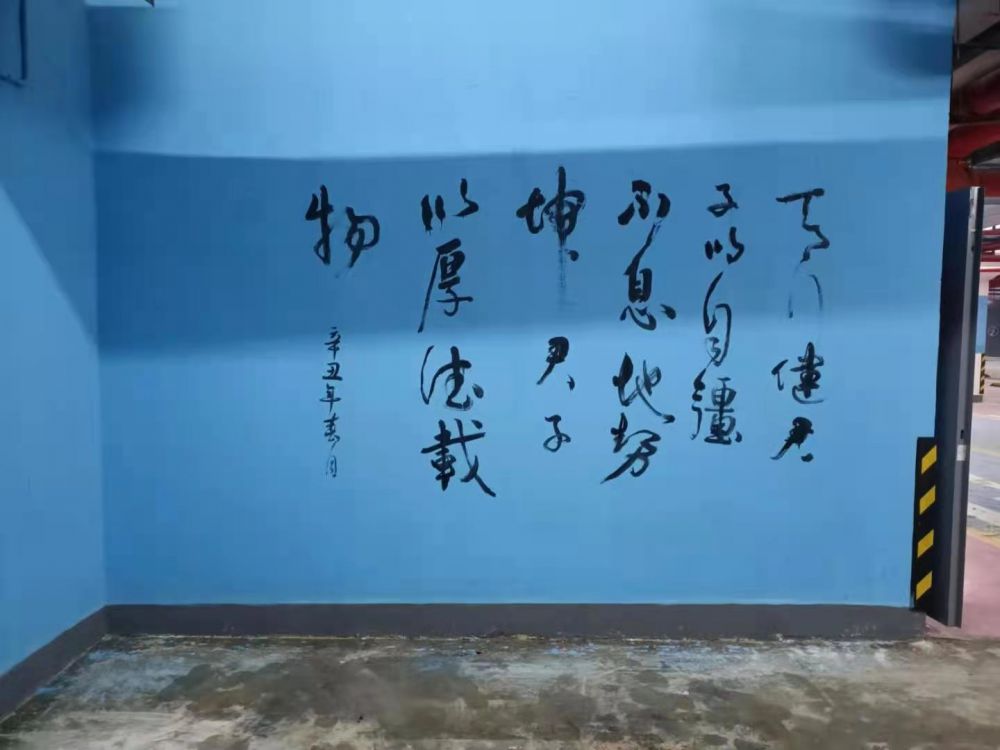 天行健君
子以自彊
不息地势
坤君子
以厚德载
物
辛丑年春月